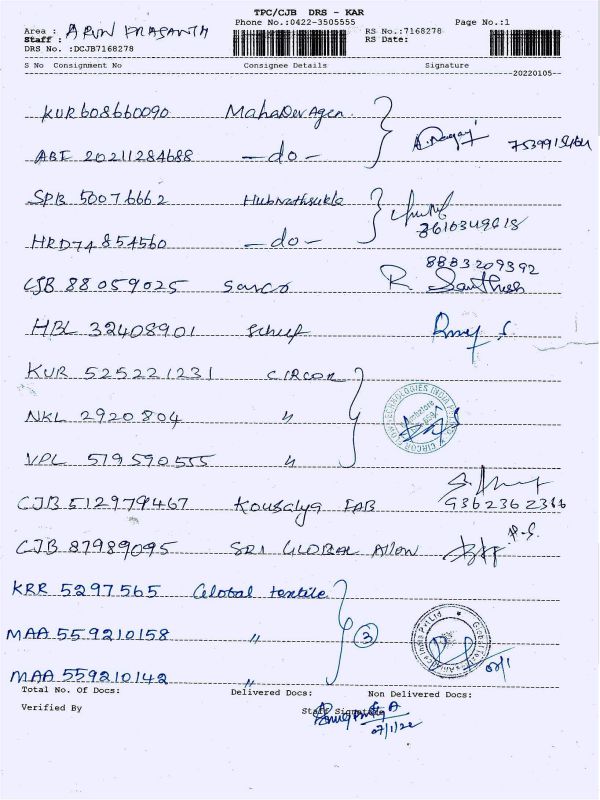 TPC/CJB DRS - KAR
Phone No.:0422-3505555 Page No.:1
Area : ARUN PRASANTH RS No.:7168278
Staff : RS Date:
DRS No. :DCJB7168278
S No Consignment No Consignee Details Signature
20220105
KUR608660090 MahaDevAgen.
ABI 20211284688 -do-
SPB 50076662
HRD74854560 -do-
8883209392
CJB 88059025 Sasco R. Santhosh
HBL 32408901
KUR 525221231 CIRCOR
NKL 2920804 "
VPL 519590555 "
CJB 512979467 Kousalya FAB 9362362366
CJB 87989095 SRI GLOBAL P.S.
KRR 5297565 Global textile
MAA 559210158 " 3
MAA 559210142 "
Total No. Of Docs: Delivered Docs: Non Delivered Docs:
Verified By Staff Signature
07/1/22